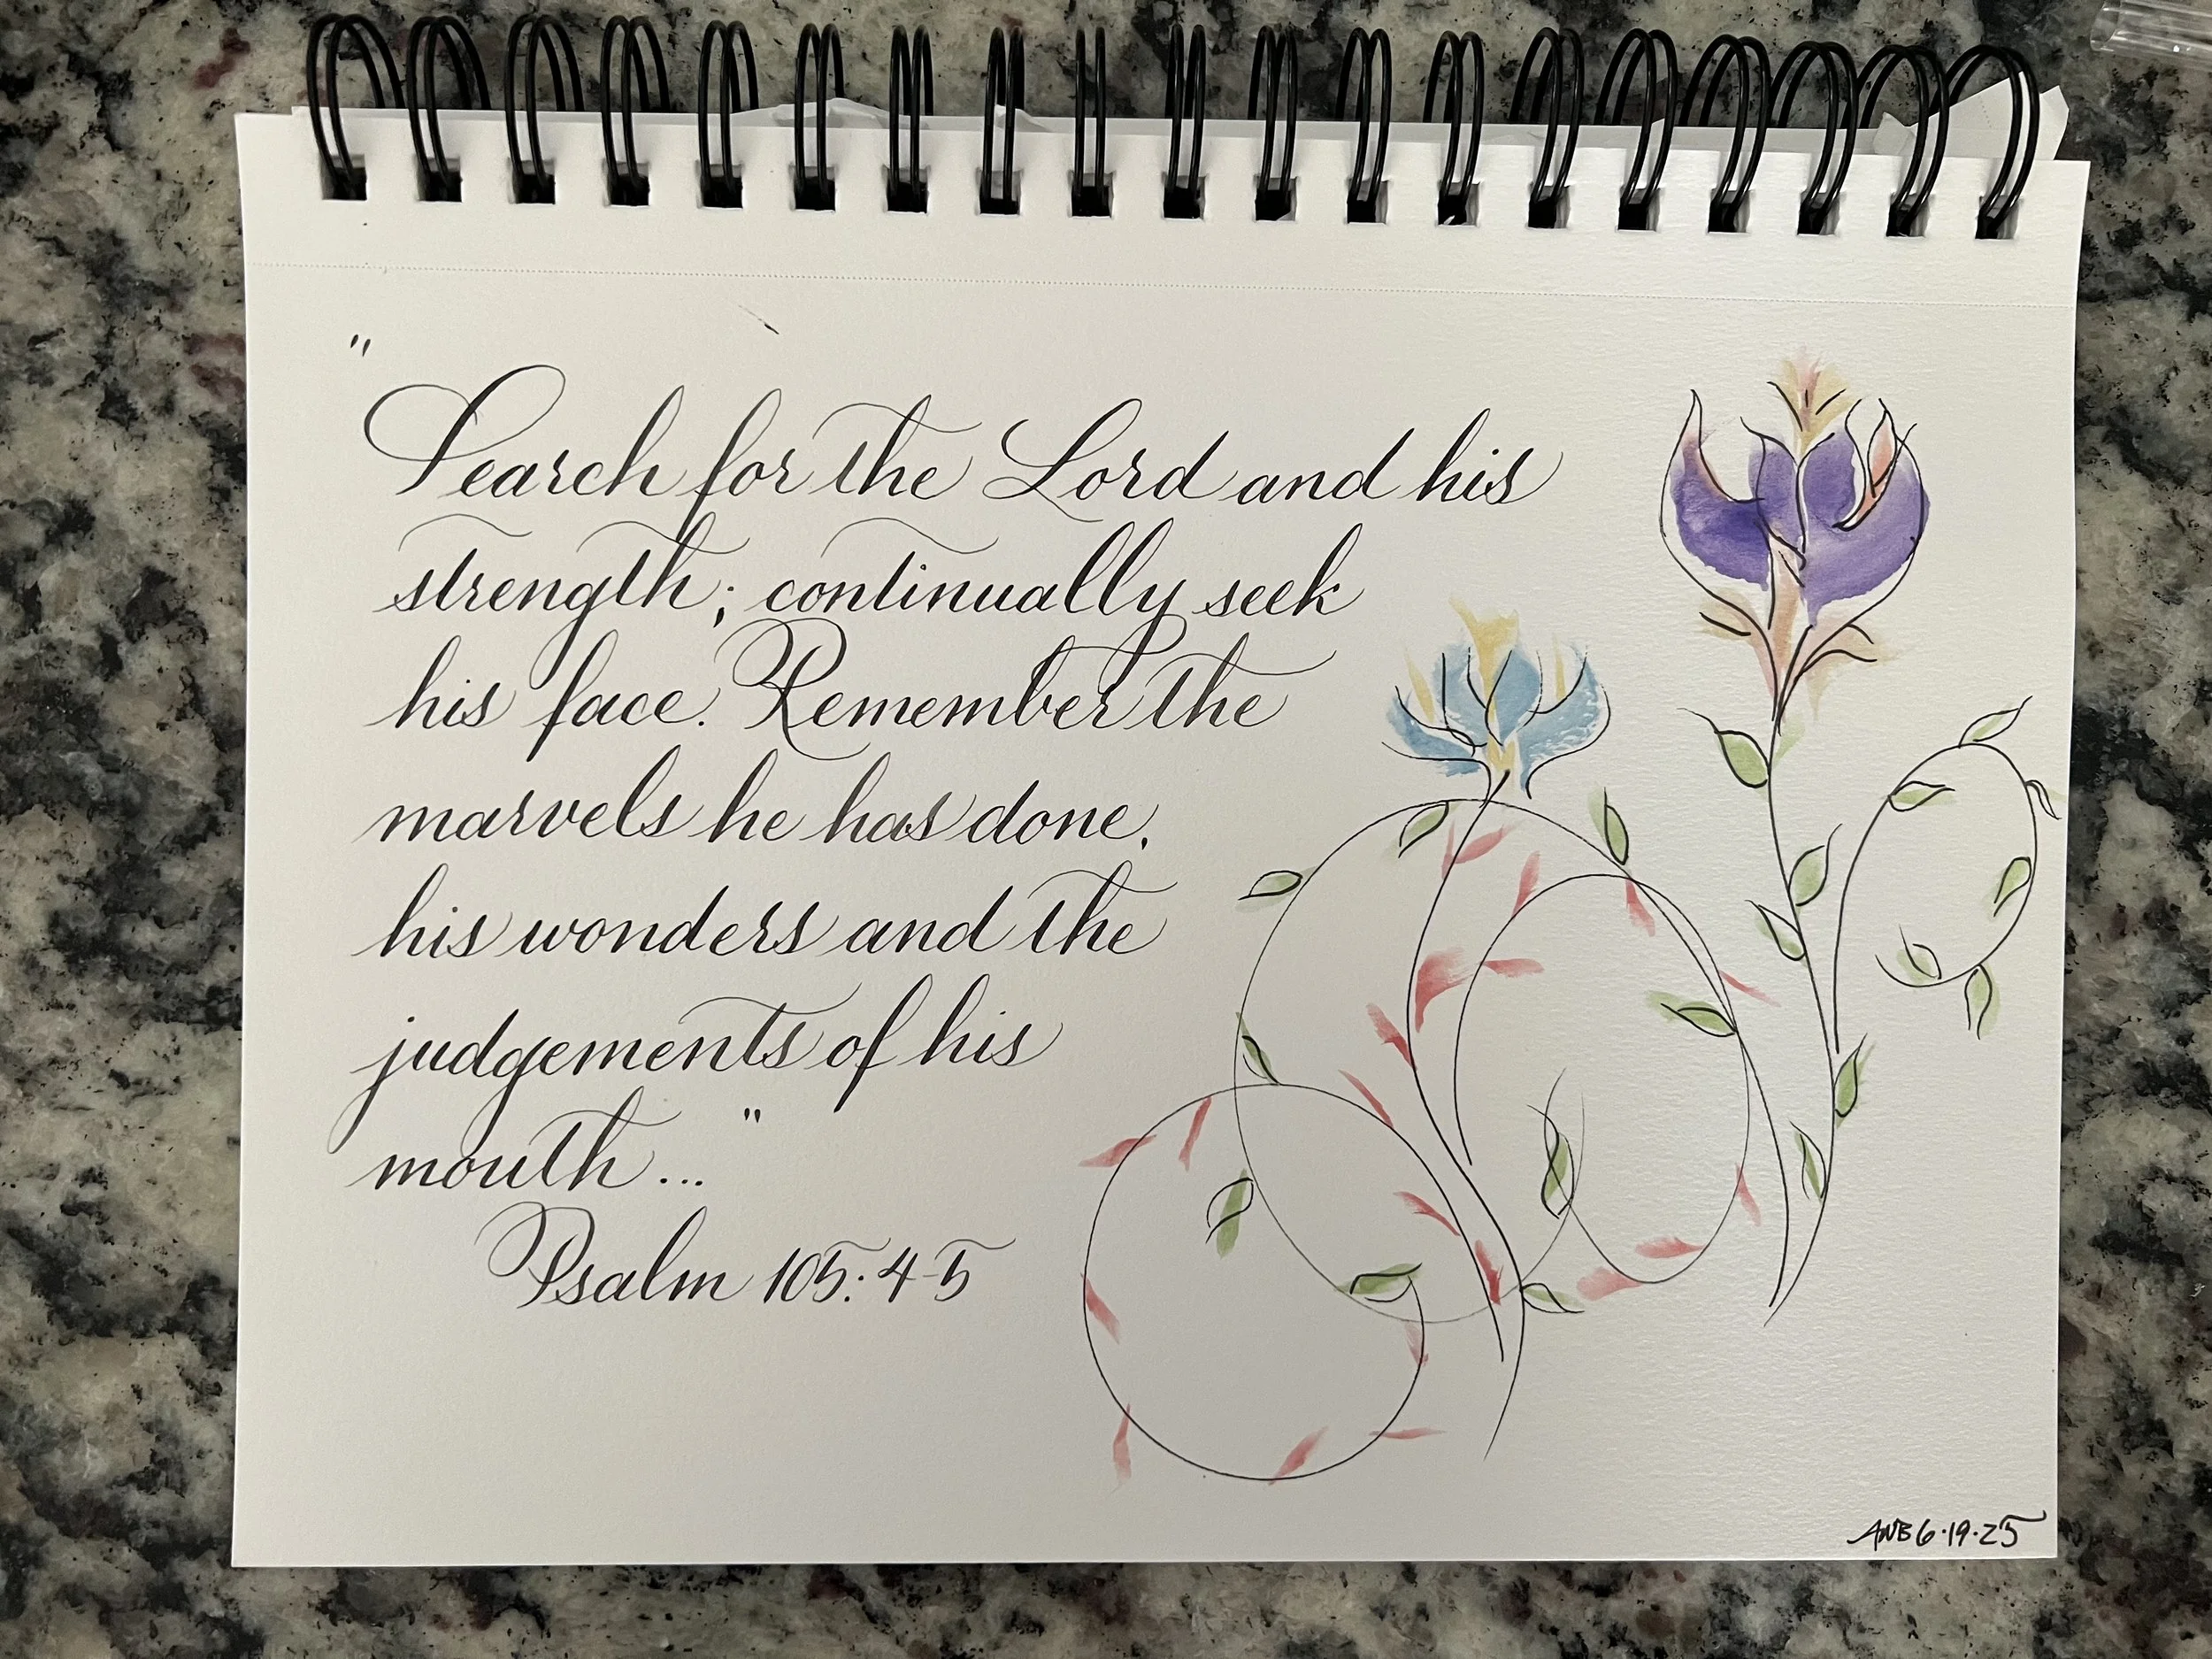 "Search for the Lord and his
strength; continually seek
his face. Remember the
marvels he has done,
his wonders and the
judgements of his
mouth..."
Psalm 105:4-5
ANB 6·19·25